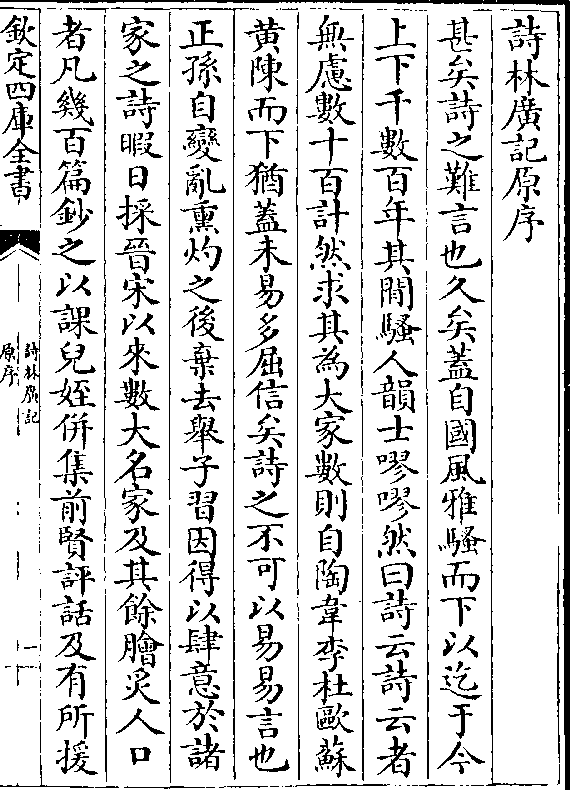 詩林廣記原序
甚矣詩之難言也久矣蓋自國風雅騷而下以迄于今
上下千數百年其間騷人韻士嘐嘐然曰詩云詩云者
無慮數十百計然求其為大家數則自陶韋李杜歐蘇
黄陳而下猶蓋未易多屈信矣詩之不可以易易言也
正孫自變亂熏灼之後棄去舉子習因得以肆意於諸
家之詩暇日採晉宋以來數大名家及其餘膾炙人口
者凡幾百篇鈔之以課兒姪併集前賢評話及有所援
欽定四庫全書
詩林廣記
原序
一